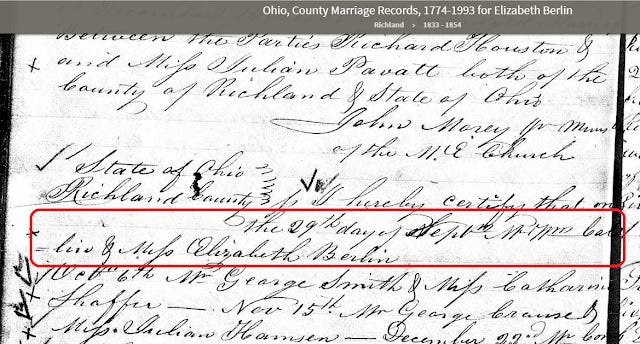 Ohio, County Marriage Records, 1774-1993 for Elizabeth Berlin
Richland > 1833 - 1854
Between the Parties Richard Houston &
and Miss Julian Pavatt both of the
County of Richland & State of Ohio
John Morey
of the M.E. Church
State of Ohio
Richland County ss I hereby certify that on
the 29th day of Sept Mr Wm
& Miss Elizabeth Berlin
Oct 6th Mr George Smith & Miss Catharin
Shaffer — Nov 15th Mr George Crause &
Miss Julian Hamsen — December 22nd Mr